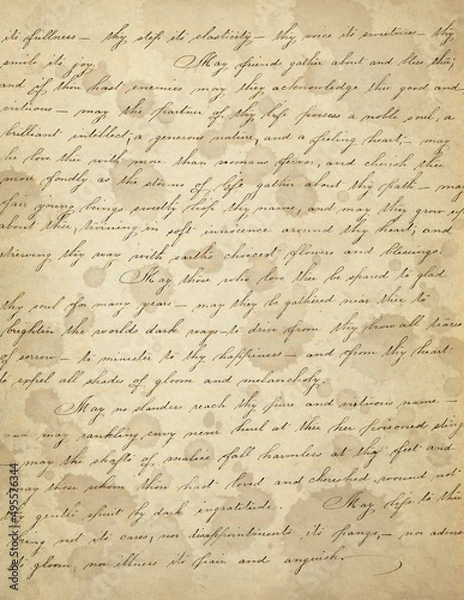 its fullness — thy step its elasticity — thy voice its sweetness — thy
smile its joy. May friends gather about and bless thee,
and if thou hast enemies may they acknowledge thee good and
virtuous — may the partner of thy life possess a noble soul, a
brilliant intellect, a generous nature, and a feeling heart, — may
he love thee with more than womans fervor, and cherish thee
more fondly as the storms of life gather about thy path — may
fair young beings sweetly lisp thy name, and may they grow up
about thee, twining in soft innocence around thy heart, and
strewing thy way with earths choicest flowers and blessings.
May those who love thee be spared to glad
thy soul for many years — may they be gathered near thee to
brighten the worlds dark ways — to drive from thy brow all traces
of sorrow — to minister to thy happiness — and from thy heart
to expel all shades of gloom and melancholy.
May no slanders reach thy pure and virtuous name —
may rankling envy never hurl at thee her poisoned sting
may the shafts of malice fall harmless at thy feet and
may those whom thou hast loved and cherished wound not
gentle spirit by dark ingratitude. May life to thee
not its cares, nor disappointments its pangs, — nor
gloom, nor illness its pain and anguish.
Adobe Stock | #495576344